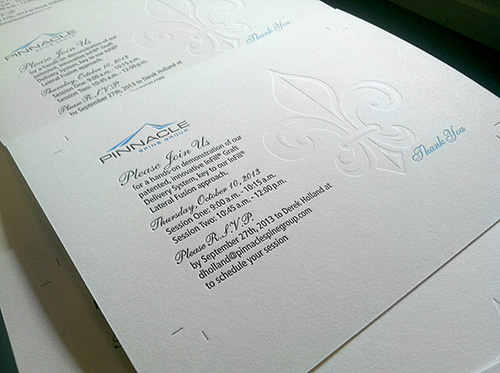 PINNACLE
Please Join Us
for a hands-on demonstration of our
patented, innovative InFill® Graft
Delivery System, key to our InFill®
Lateral Fusion approach.
Thursday, October 10, 2013
Session One: 9:00 a.m. - 10:15 a.m.
Session Two: 10:45 a.m. - 12:00 p.m.
Please R.S.V.P.
by September 27th, 2013 to Derek Holland at
Thank You
PINNACLE
SPINE GROUP
Please Join Us
for a hands-on demonstration of our
patented, innovative InFill® Graft
Delivery System, key to our InFill®
Lateral Fusion approach.
Thursday, October 10, 2013
Session One: 9:00 a.m. - 10:15 a.m.
Session Two: 10:45 a.m. - 12:00 p.m.
Please R.S.V.P.
by September 27th, 2013 to Derek Holland at
dholland@pinnaclespinegroup.com
to schedule your session
Thank You